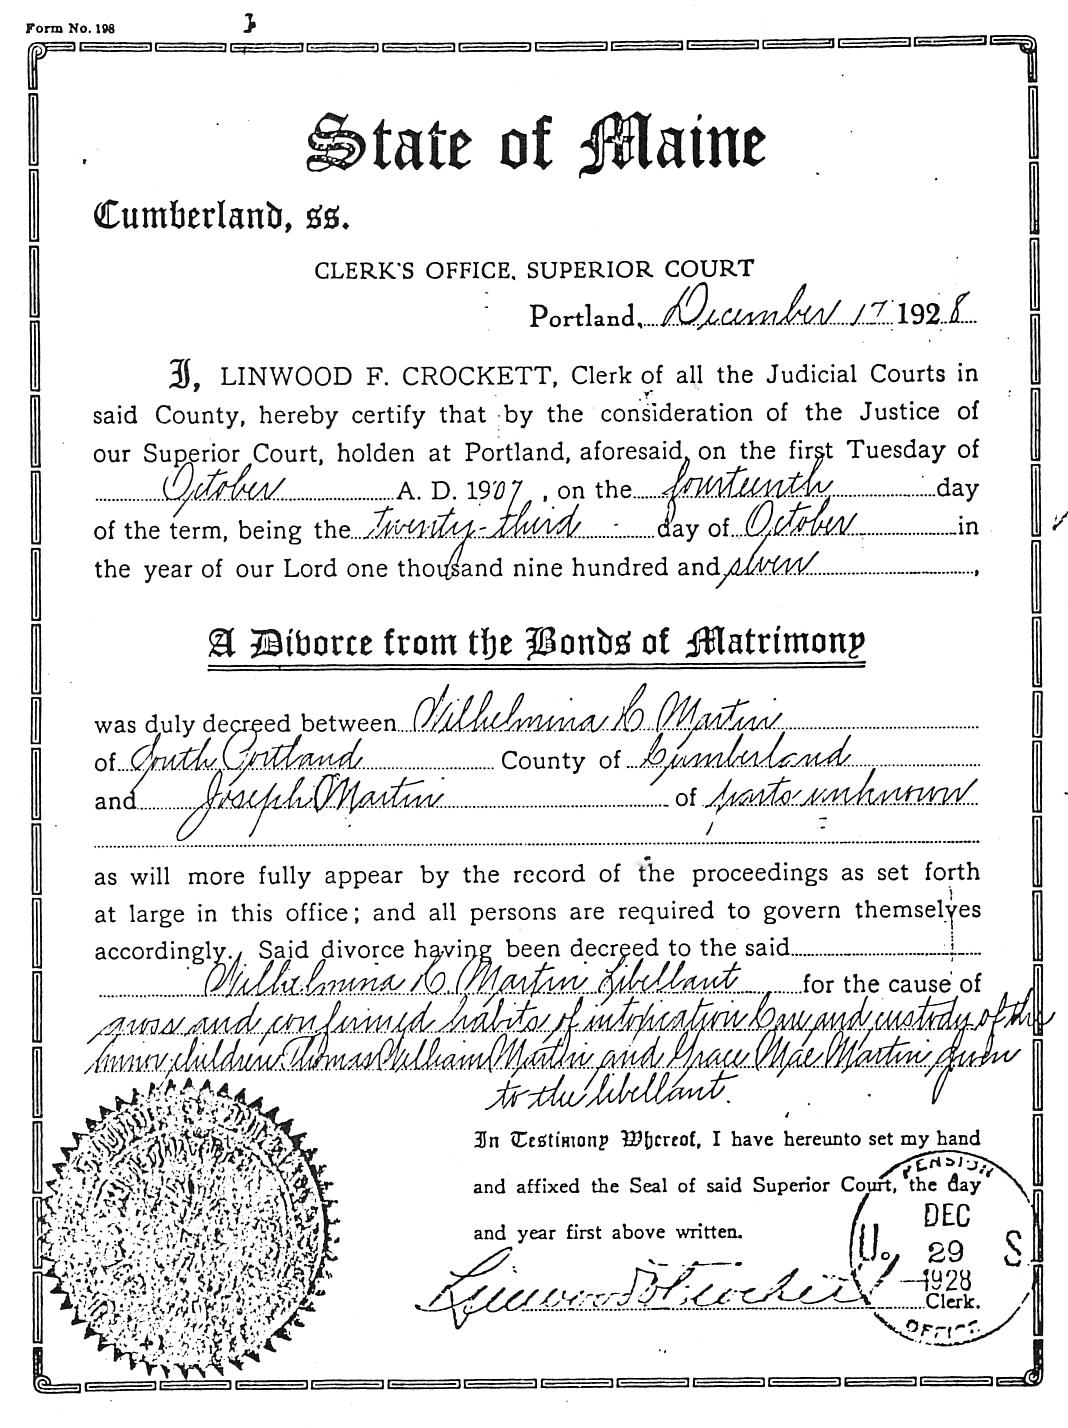 Form No. 198
State of Maine
Cumberland, ss.
CLERK'S OFFICE, SUPERIOR COURT
Portland, December 17 1928
I, LINWOOD F. CROCKETT, Clerk of all the Judicial Courts in
said County, hereby certify that by the consideration of the Justice of
our Superior Court, holden at Portland, aforesaid, on the first Tuesday of
October A. D. 1907, on the fourteenth day
of the term, being the twenty-third day of October in
the year of our Lord one thousand nine hundred and seven,
A Divorce from the Bonds of Matrimony
was duly decreed between Wilhelmina C Martin
of South Portland County of Cumberland
and Joseph Martin of parts unknown
as will more fully appear by the record of the proceedings as set forth
at large in this office; and all persons are required to govern themselves
accordingly. Said divorce having been decreed to the said
Wilhelmina C. Martin Libellant for the cause of
gross and confirmed habits of intoxication Care and custody of the
minor children Thomas William Martin and Grace Mae Martin given
to the libellant.
In Testimony Whereof, I have hereunto set my hand
and affixed the Seal of said Superior Court, the day
and year first above written.
Linwood F. Crockett
Clerk.
U. S. PENSION OFFICE
DEC
29
1928